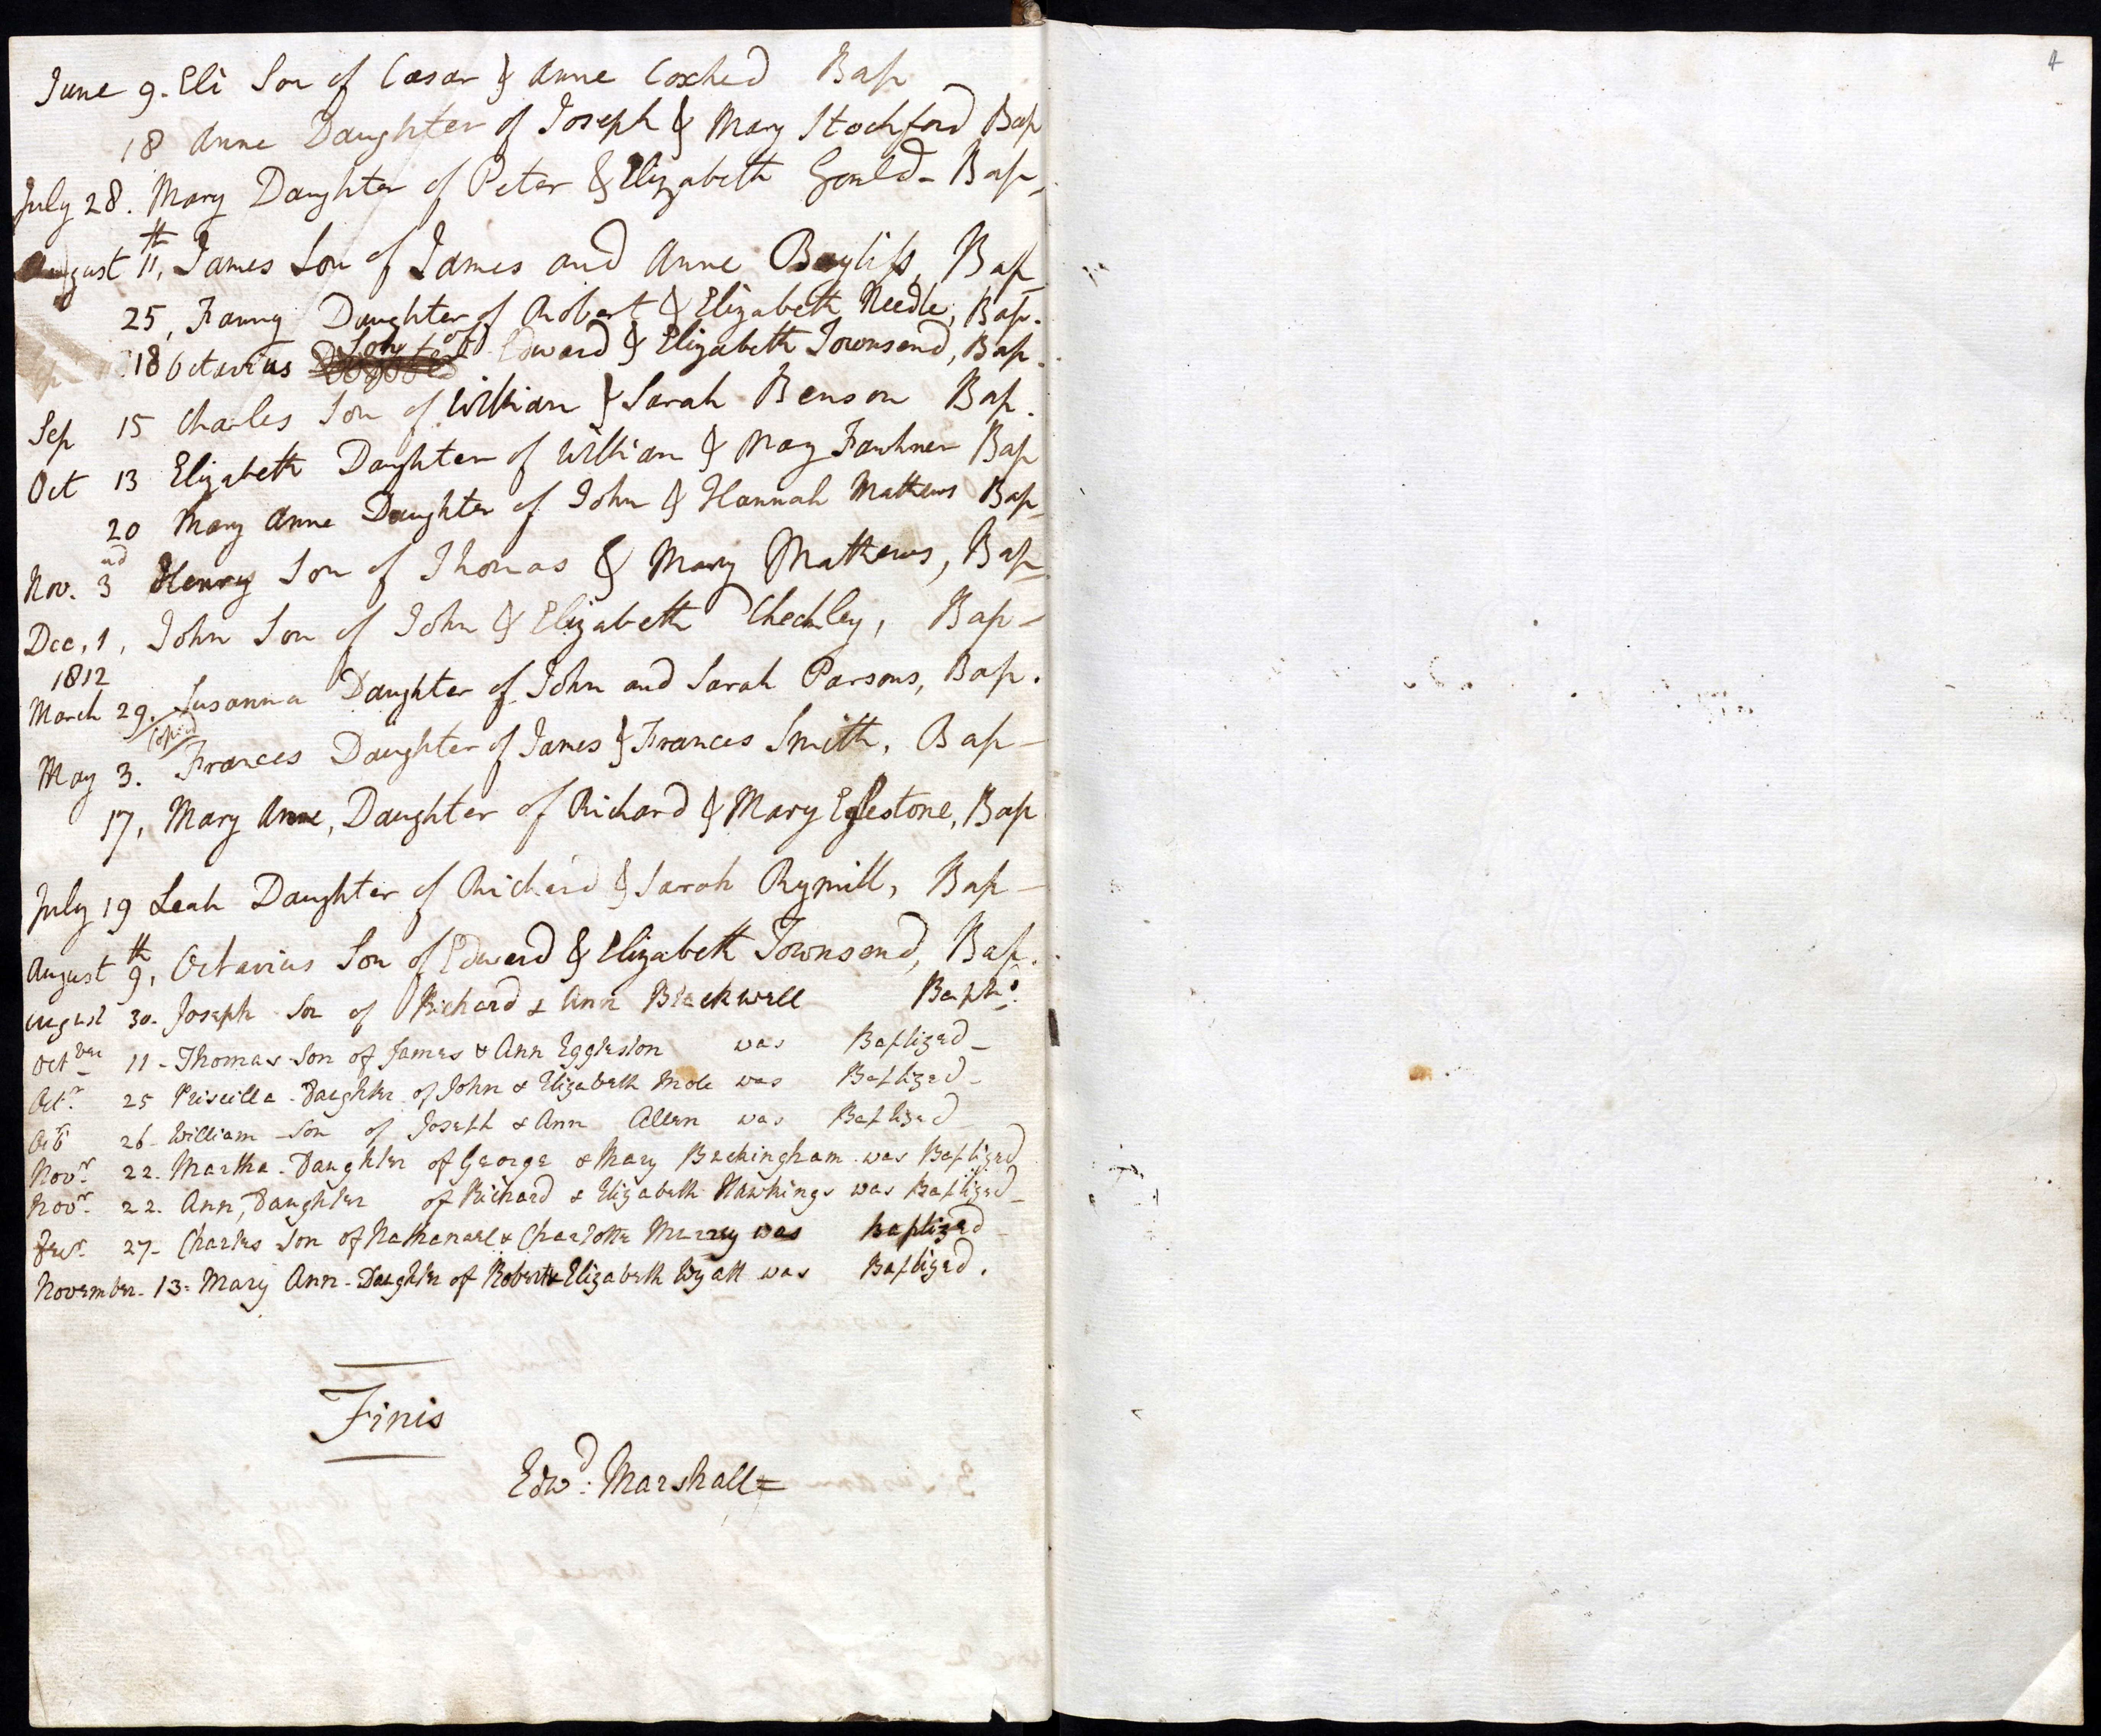 4
June 9. Eli Son of Cæsar & Anne Coxhed Bap
18 Anne Daughter of Joseph & Mary Stockford Bap
July 28. Mary Daughter of Peter & Elizabeth Gould - Bap
August 11th, James Son of James and Anne Bayliss, Bap
25, Fanny Daughter of Robert & Elizabeth Needle, Bap.
18 Octavius Son of Edward & Elizabeth Townsend, Bap.
Sep 15 Charles Son of William & Sarah Benson Bap.
Oct 13 Elizabeth Daughter of William & Mary Faulkner Bap
20 Mary Anne Daughter of John & Hannah Mathews Bap
Nov. 3nd Henry Son of Thomas & Mary Mathews, Bap
Dec, 1, John Son of John & Elizabeth Checkley, Bap -
1812
March 29. Susanna Daughter of John and Sarah Parsons, Bap.
Copied
May 3. Frances Daughter of James & Frances Smith, Bap -
17, Mary Anne, Daughter of Richard & Mary Eglestone, Bap
July 19 Leah Daughter of Richard & Sarah Rymill, Bap -
August 9th, Octavius Son of Edward & Elizabeth Townsend, Bap.
August 30. Joseph Son of Richard & Ann Blackwell Bapd.
Octber 11 - Thomas Son of James & Ann Eggleston was Baptized -
Octr. 25 Priscilla - Daughter of John & Elizabeth Mole was Baptized -
Octr 26 - William - Son of Joseph & Ann Allen was Baptized -
Novr. 22. Martha - Daughter of George & Mary Buckingham was Baptized
Novr. 22. Ann, Daughter of Richard & Elizabeth Hawkings was Baptized -
27 - Charles Son of Nathanael & Charlotte Merrey was Baptized -
November - 13 = Mary Ann - Daughter of Robert & Elizabeth Wyatt was Baptized.
Finis
Edwd: Marshall =